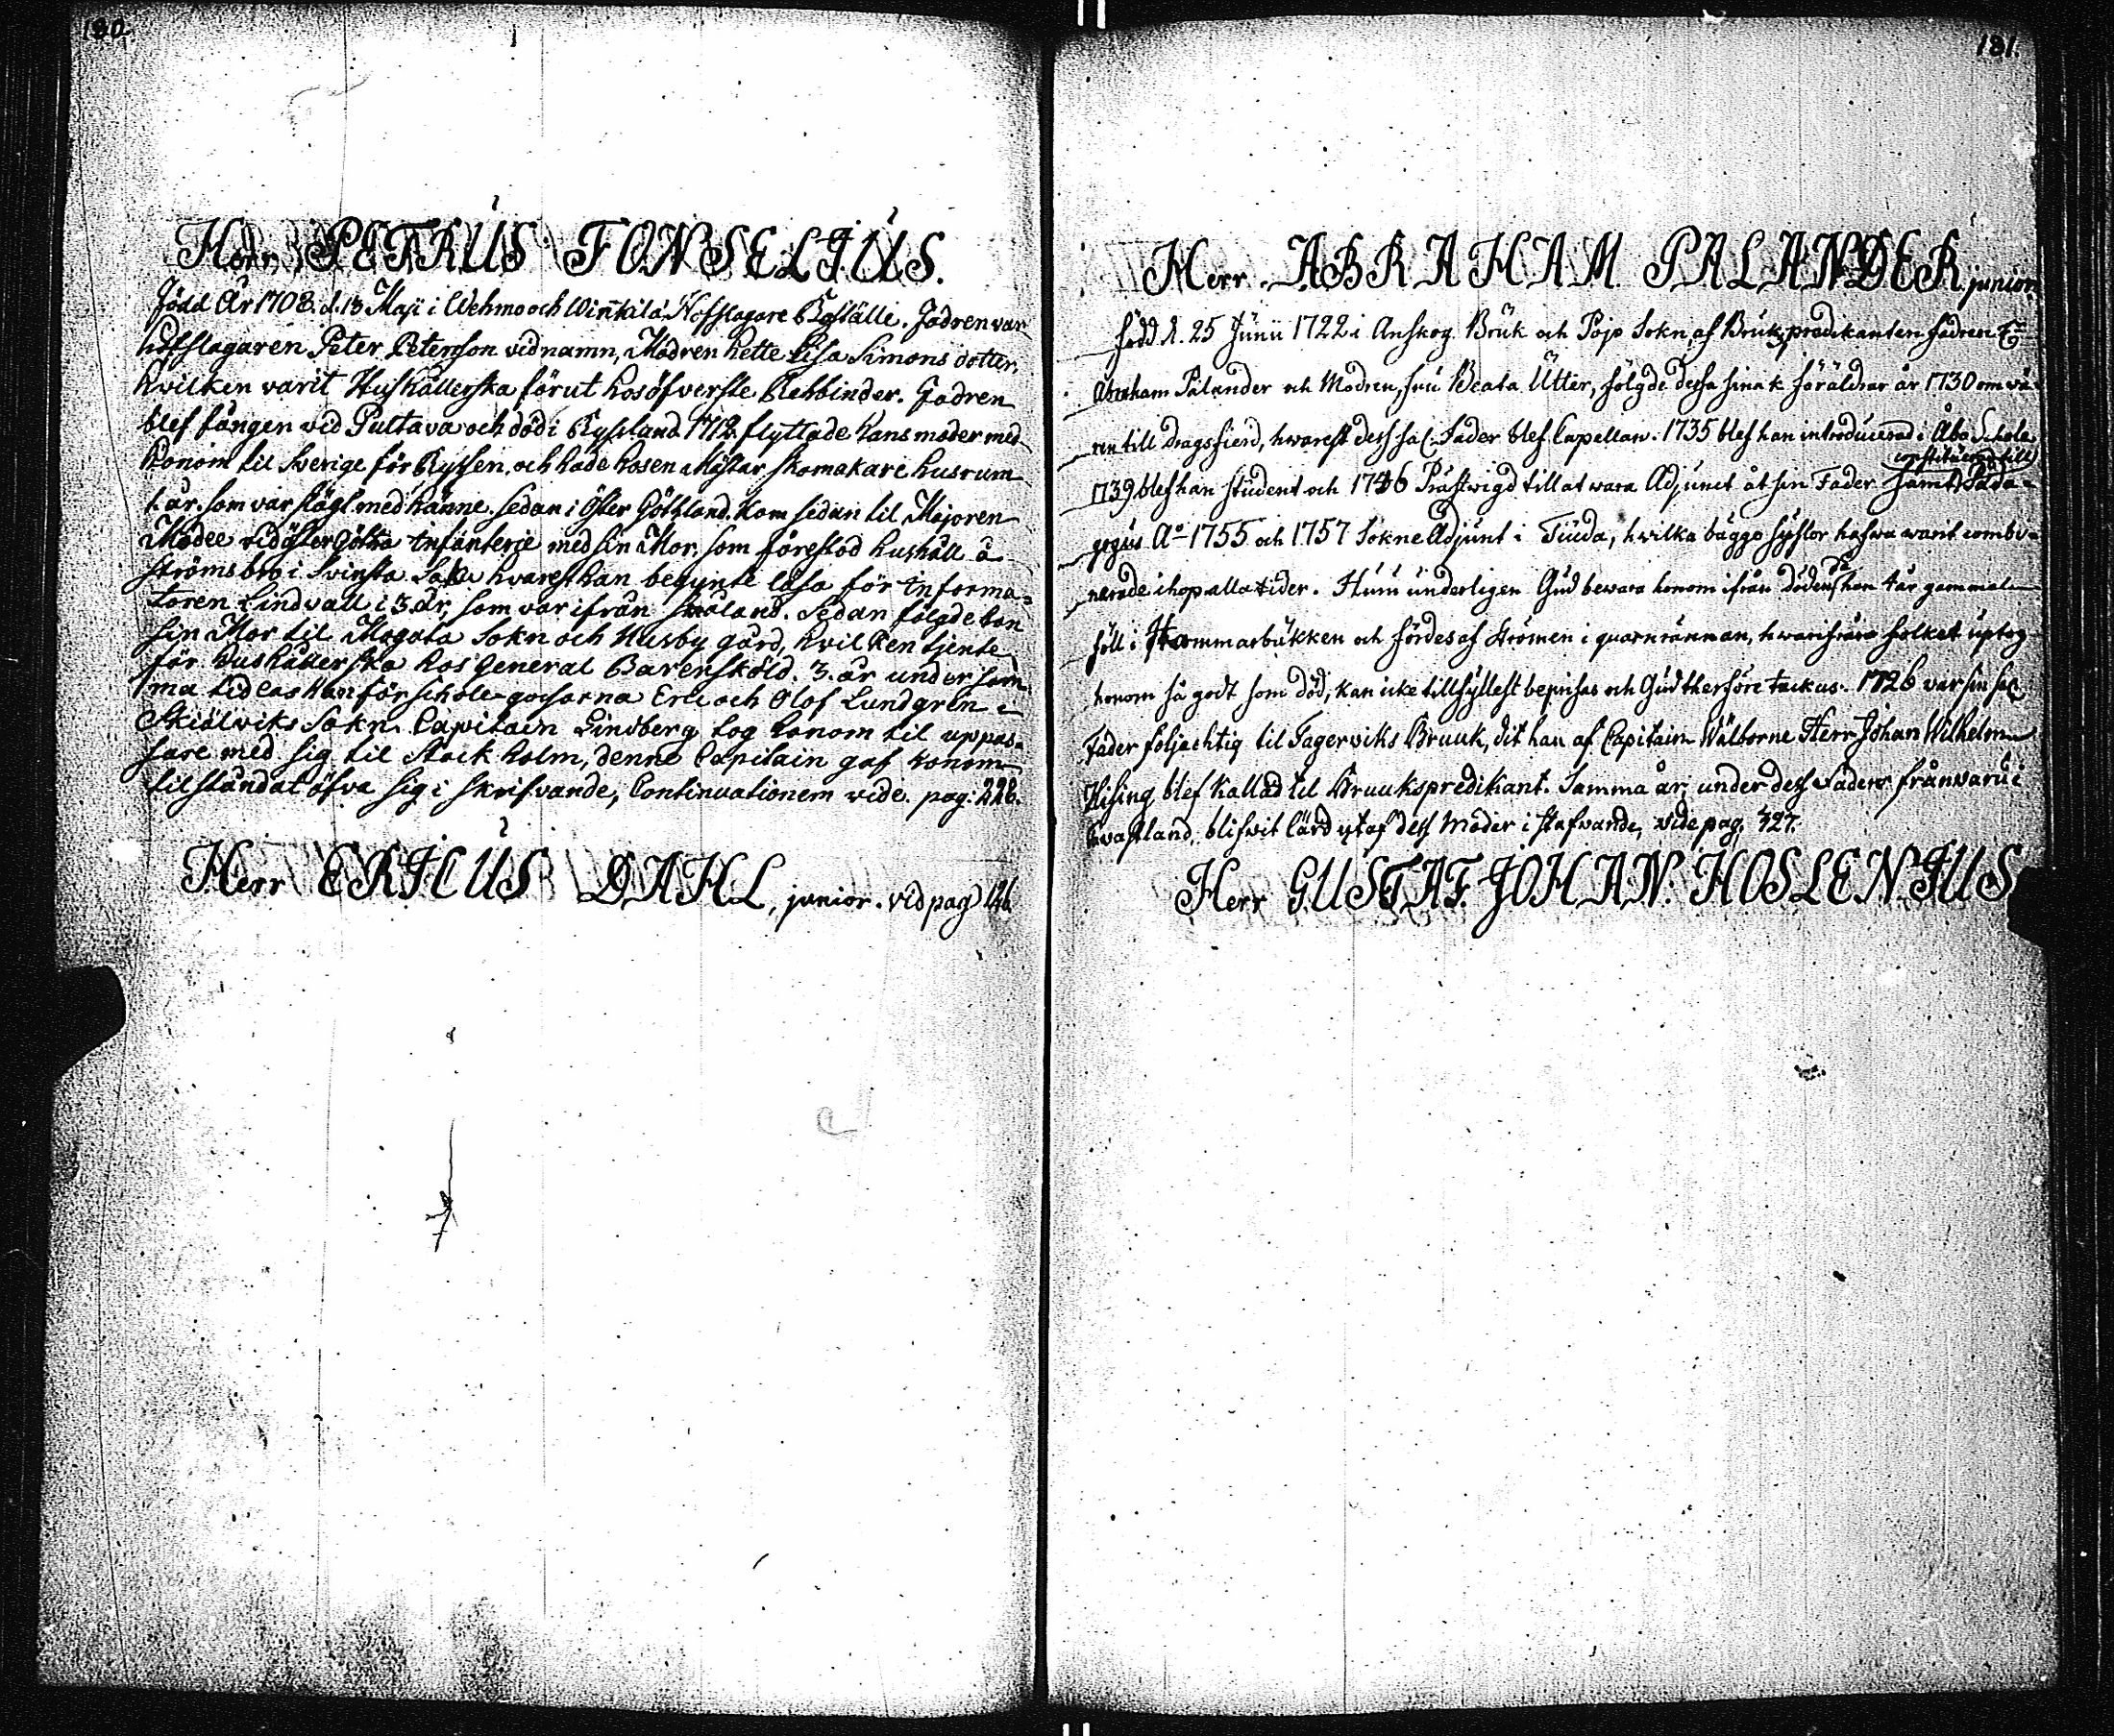 180.
Herr PETRUS FONSELIUS.
Född År 1708. d. 13 Maji i Wehmo och Winkila Hofslagare Boställe. Fadren var
hofslagaren Peter Peterson vid namn, Modren hette Lisa Simons dotter,
hvilken varit Hushållerska förut hos öfverste Rehbinder. Fadren
blef fången vid Pultava och död i Ryssland. 1712. flyttade hans moder med
honom til Sverige för Ryssen, och hade hos en Mästar skomakare husrum
1. år. som var slägt med hänne. sedan i Öster Göthland. Kom sedan til Majoren
Modee vid Öster Götha infanterie med sin Mor, som förestod hushåll å
strömsbro i Svinsta Sokn hvarest han begynte läsa för informa=
toren Lindvall i 3. år, som var ifrån småland. Sedan fölgde han
sin Mor til Mogata Sokn och Husby gård, hvilken tjente
för Hushållerska hos General Barensköld. 3. år under sam
ma tid las han för schole-gossarna Eric och Olof Lundgren i
Skiälviks Sokn. Capitain Lindberg tog honom til uppas=
sare med sig til Stockholm, denne Capitain gaf honom
tilstånd at öfva sig i skrifvande, Continuationem vide. pag: 228.
Herr ERICUS DAHL, junior. vid pag 126.
181.
Herr ABRAHAM PALANDER junior.
född d. 25 Junii 1722 i Anskog Bruk och Pojo Sokn, af Bruks predikanten fadren Hr
Abraham Palander och Modren, fru Beata Utter, fölgde dessa sina k. föräldrar år 1730 om wå-
ren till Dragsfierd, hwarest dess sal. Fader blef Capellan. 1735 blef han introducerad i Åbo Schola
constituerad till
1739 blef han student och 1746 Prästwigd till at wara Adjunct åt sin Fader samt Päda-
gogus Ao 1755 och 1757 Sokne Adjunt i Finda, hwilka bägge syslor hafwa warit combi-
då
nerade ihop alla tider. Huru underligen Gud bewara honom ifrån döden han 4 år gammal
föll i Hammarbäkken och fördes af Strömen i quarnrännan, hwarifrån folket uptog
honom så godt som död, kan icke tillfyllest beprisas och Gud therföre tackas. 1726 var sin sal
Fader följachtig til Fagerwiks Bruuk, dit han af Capitain Wälborne Herr Johan Wilhelm
Hising blef kallad til Bruukspredikant. Samma år, under dess Faders frånvaru i
Swastland, blifwit lärd ut af dess Moder i stafwande, vide pag. 427.
Herr GUSTAF. JOHAN. HOSLENIUS